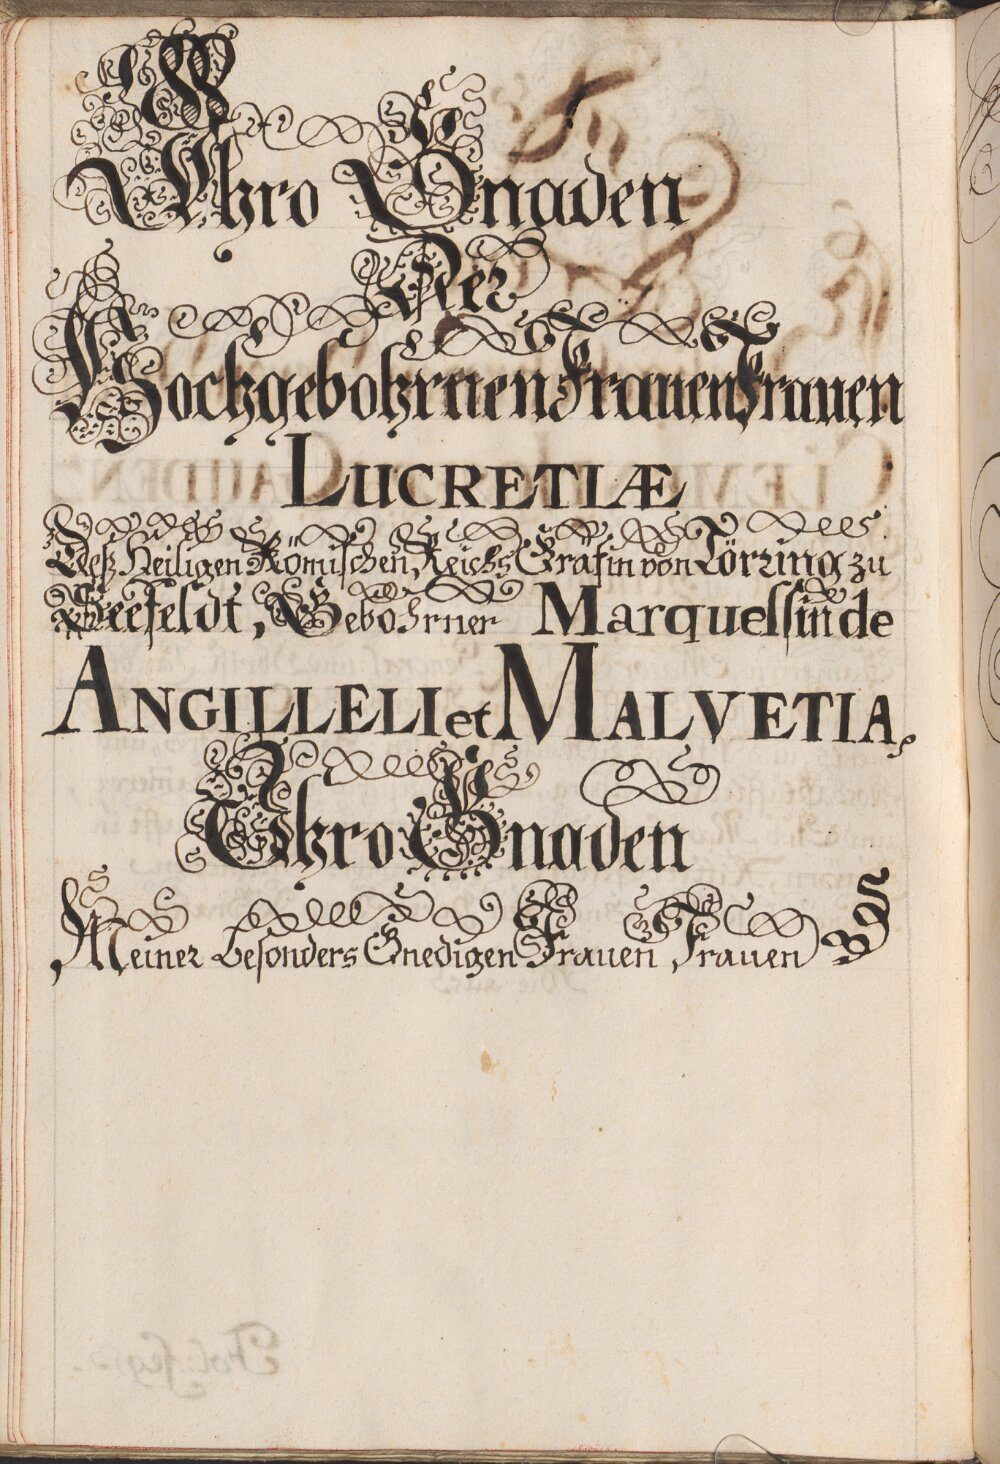 Ihro Gnaden
Der
Hochgebohrnen Frauen Frauen
LUCRETIÆ
Deß Heiligen Römischen Reichs Gräfin von Törring zu
Seefeldt, Gebohrner Marquessin de
ANGILLELI et MALVETIA,
Ihro Gnaden
Meiner besonders Gnedigen Frauen Frauen